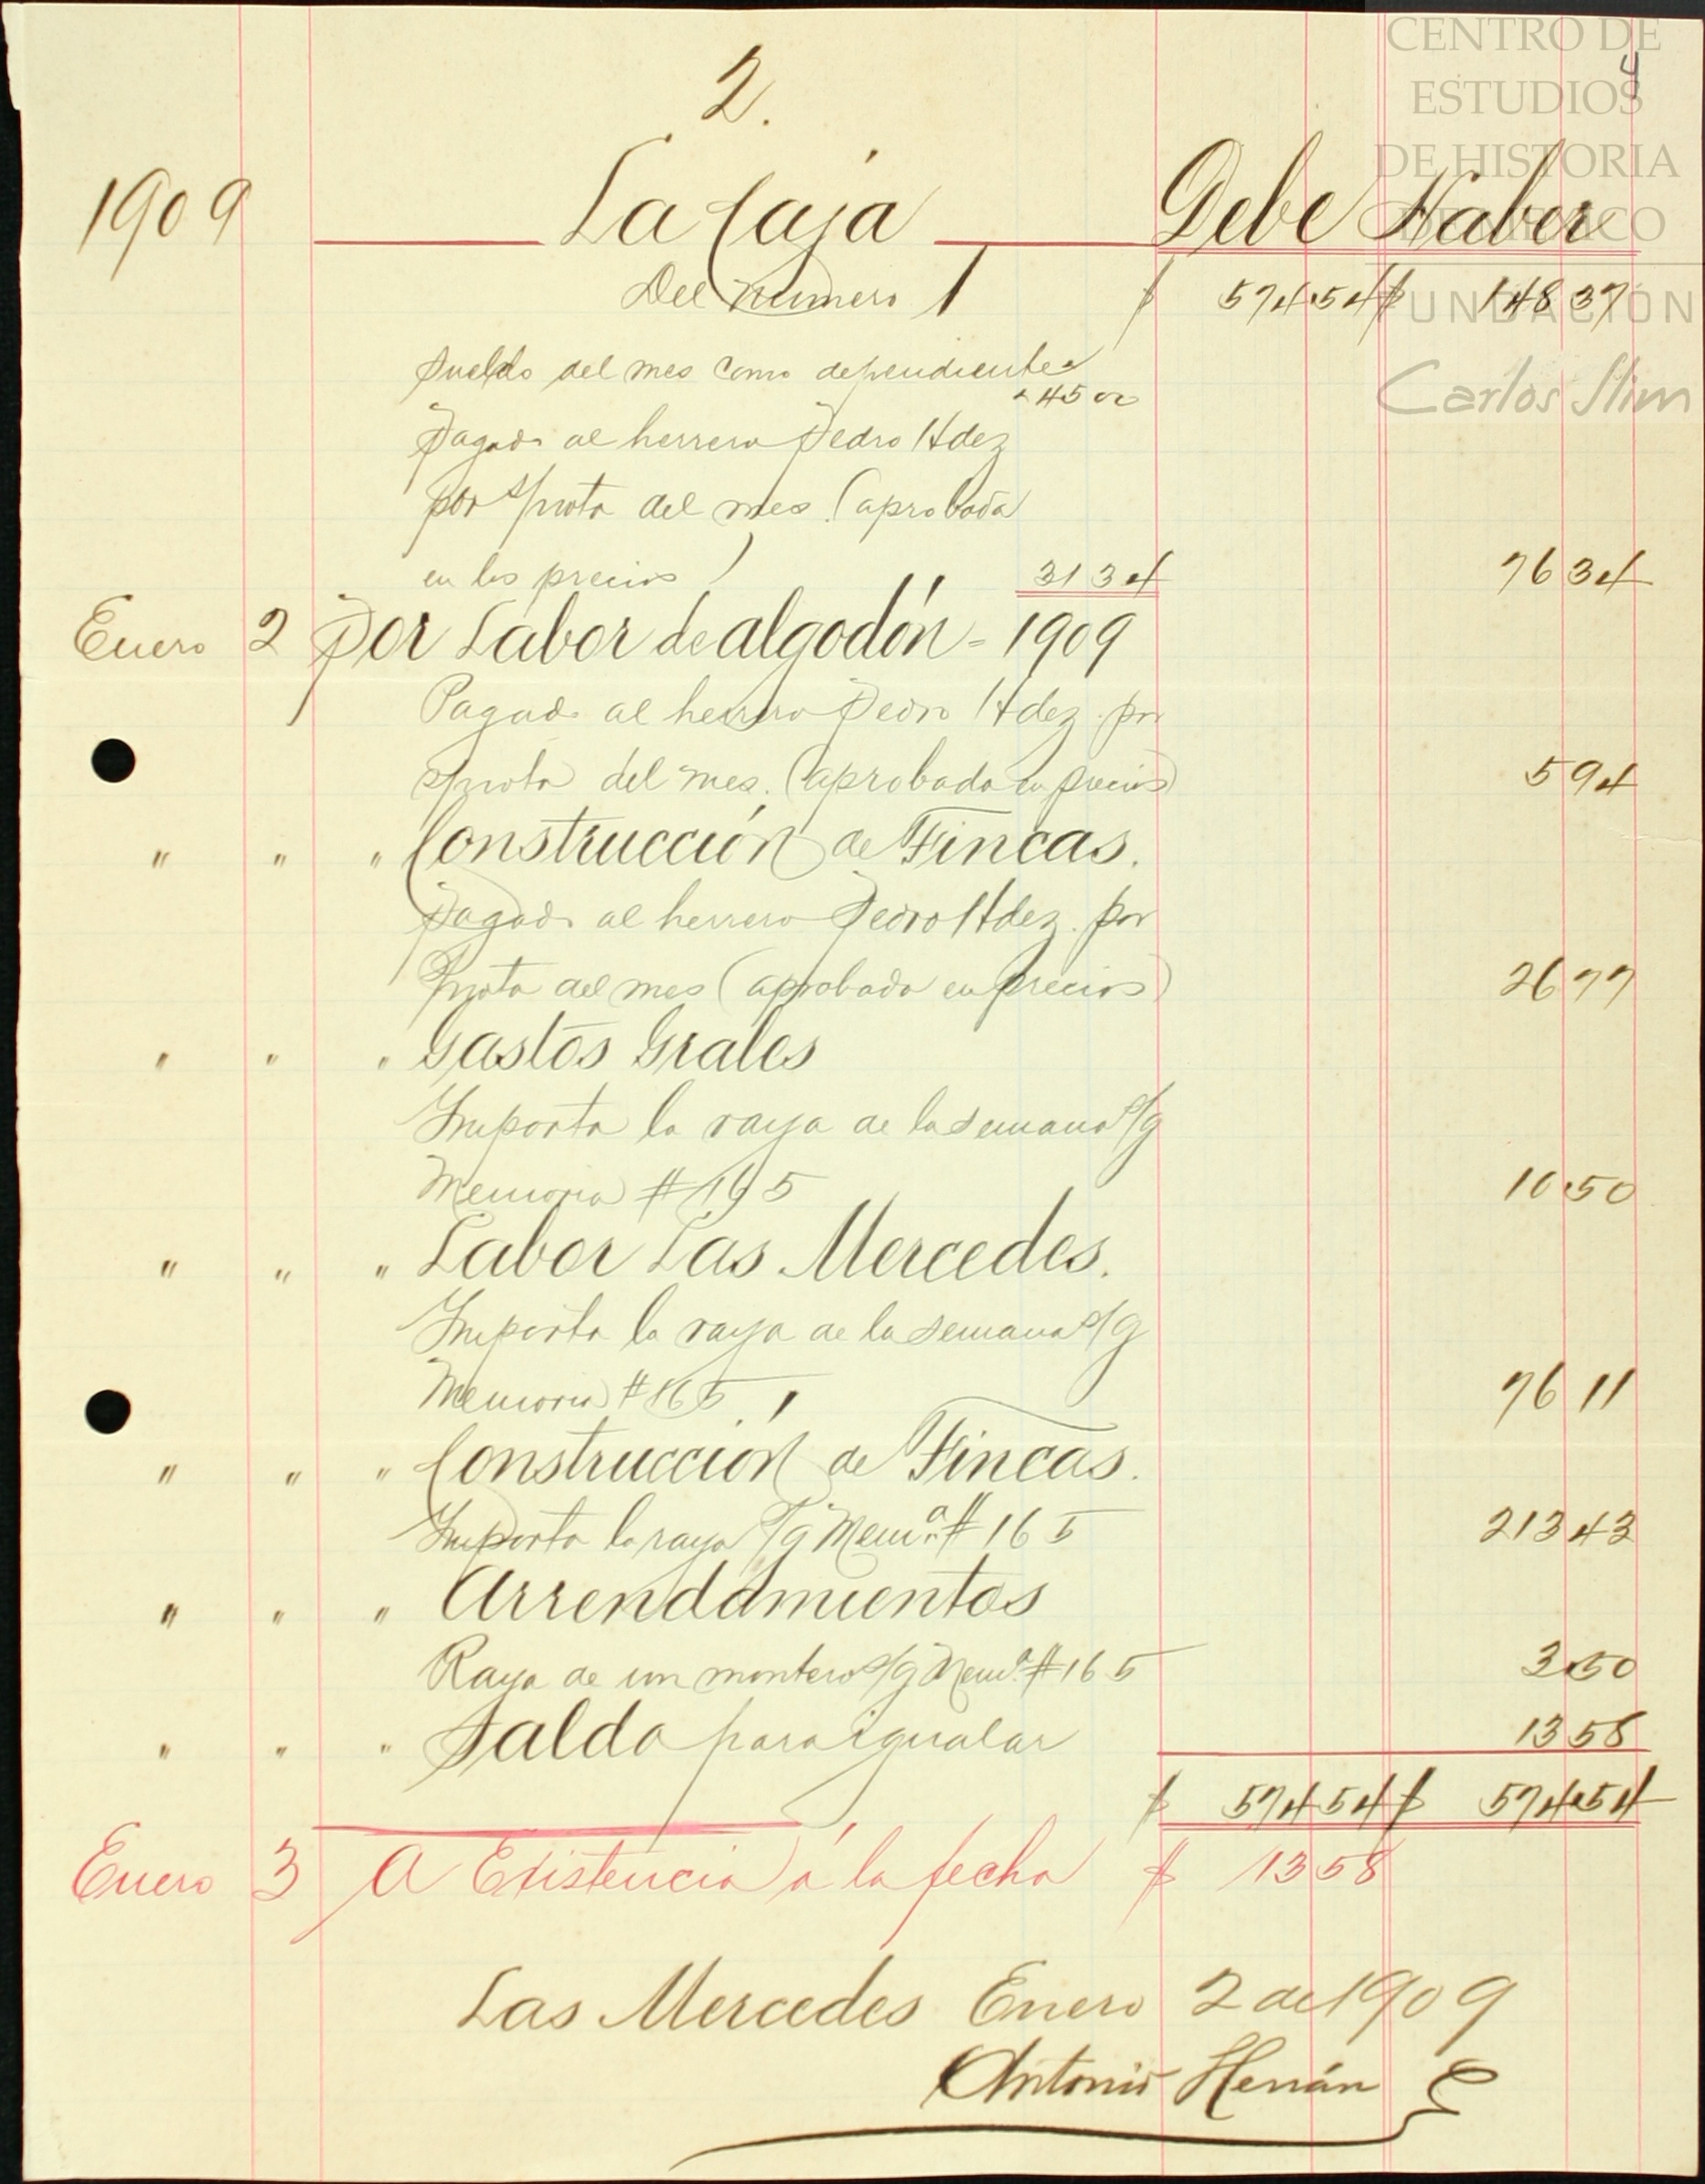 CENTRO DE
ESTUDIOS
DE HISTORIA
DE MÉXICO
FUNDACIÓN
Carlos Slim
4
2.
1909 La Caja Debe Haber
Del numero 1 $ 574 54 $ 148 37
Sueldo del mes como dependiente
" 45 00
Pagado al herrero Pedro Hdez
por s/nota del mes. (aprobada
en los precios) 31 34 76 34
Enero 2 Por Labor de algodón - 1909
Pagado al herrero Pedro Hdez. por
s/nota del mes. (aprobada en precios) 5 94
" " " Construcción de Fincas.
Pagado al herrero Pedro Hdez. por
s/nota del mes (aprobada en precios) 26 77
" " " Gastos Grales
Importa la raya de la semana s/g
Memoria # 165 10 50
" " " Labor Las Mercedes.
Importa la raya de la semana s/g
Memoria # 165 76 11
" " " Construcción de Fincas.
Importa la raya s/g Mem.ª # 165 213 43
" " " Arrendamientos
Raya de un montero s/g Mem.ª # 165 3 50
" " " Saldo para igualar 13 58
$ 574 54 $ 574 54
Enero 3 A Existencia á la fecha $ 13 58
Las Mercedes Enero 2 de 1909
Antonio Hernán